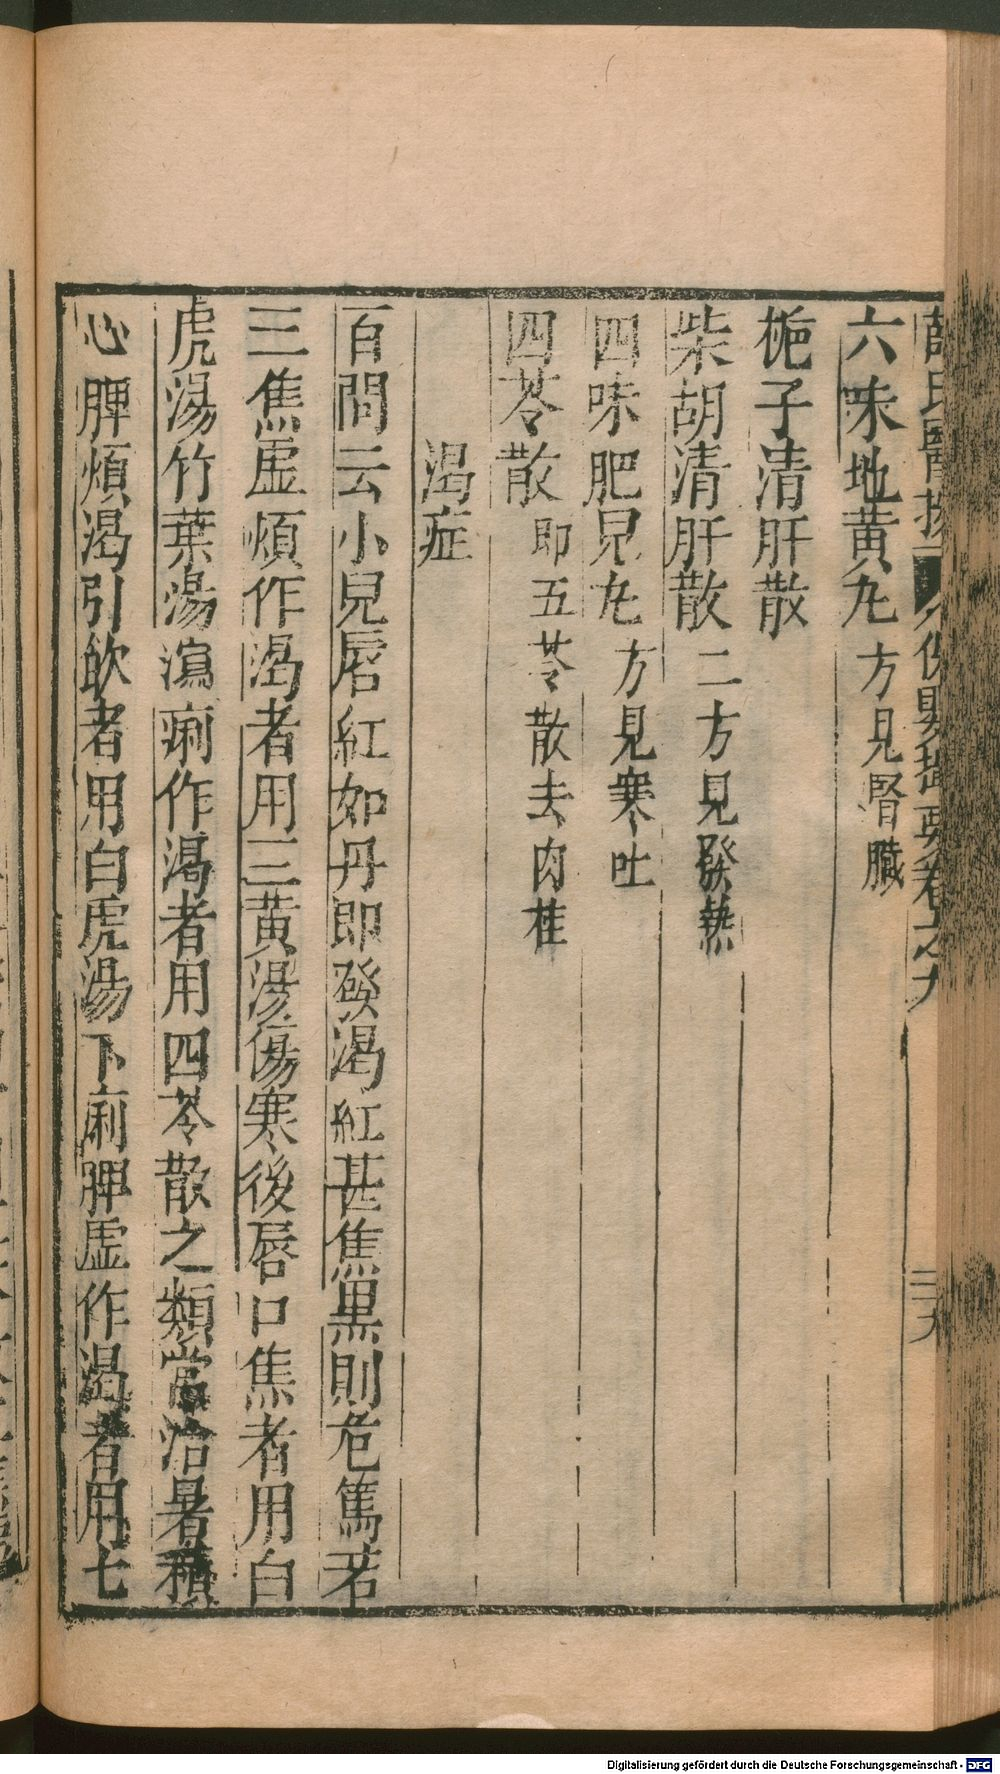 薛氏醫按 保嬰撮要卷之九 三九
六味地黃丸 方見腎臟
梔子清肝散
柴胡清肝散 二方見發熱
四味肥兒丸 方見寒吐
四苓散 即五苓散去肉桂
渴症
百問云小兒唇紅如丹即發渴紅甚焦黑則危篤若
三焦虛煩作渴者用三黃湯傷寒後唇口焦者用白
虎湯竹葉湯瀉痢作渴者用四苓散之類當治暑積
心脾煩渴引飲者用白虎湯下痢脾虛作渴者用七
Digitalisierung gefördert durch die Deutsche Forschungsgemeinschaft - DFG